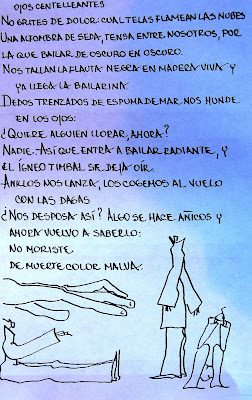 OJOS CENTELLEANTES
NO GRITES DE DOLOR: CUAL TELAS FLAMEAN LAS NUBES
UNA ALFOMBRA DE SEDA, TENSA ENTRE NOSOTROS, POR
LA QUE BAILAR DE OSCURO EN OSCURO.
NOS TALLAN LA FLAUTA NEGRA EN MADERA VIVA Y
YA LLEGA LA BAILARINA.
DEDOS TRENZADOS DE ESPUMA DE MAR NOS HUNDE
EN LOS OJOS:
¿QUIERE ALGUIEN LLORAR, AHORA?
NADIE. ASÍ QUE ENTRA A BAILAR RADIANTE, Y
EL ÍGNEO TIMBAL SE DEJA OÍR.
ANILLOS NOS LANZA, LOS COGEMOS AL VUELO
CON LAS DAGAS
¿NOS DESPOSA ASÍ? ALGO SE HACE AÑICOS Y
AHORA VUELVO A SABERLO:
NO MORISTE
DE MUERTE COLOR MALVA.